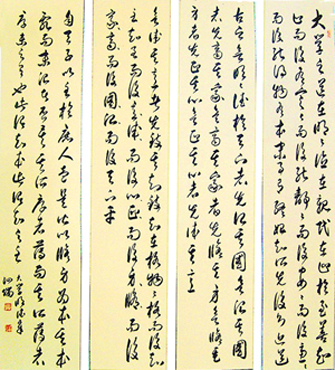 大学之道在明=德在親民在止於至善知
止而後有定=而後能靜=而後能安=而後能慮=
而後能得物有本末事有終始知所先後則近道
古之欲明=德於天下者先治其國欲治其國
者先齊其家欲齊其家者先脩其身欲脩其身
者先正其心欲正其心者先誠其意
欲誠其意者先致其知致知在格物=格而後知
至知至而後意誠意誠而後心正心正而後身脩身脩而後
家齊家齊而後國治國治而後天下平
自天子以至於庶人壹是皆以脩身為本其本
亂而末治者否矣其所厚者薄而其所薄者
厚未之有也此謂知本此謂知之至